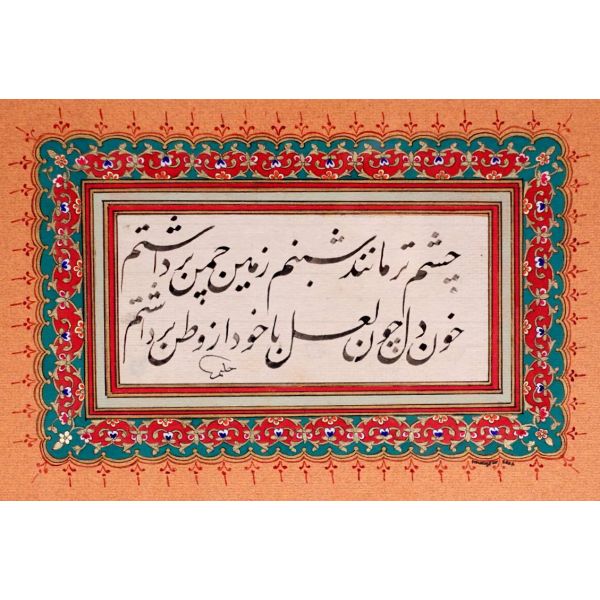 چشم تر مانند شبنم زمین چمن برداشتم
خون دل چون لعل با خود از وطن برداشتم